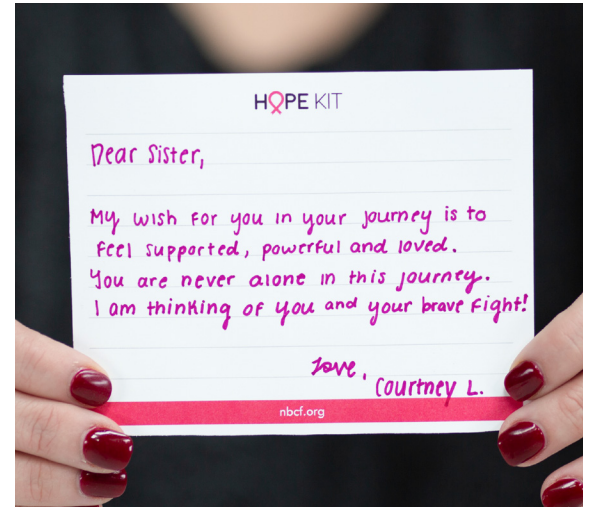 HOPE KIT
Dear Sister,
My wish for you in your journey is to
feel supported, powerful and loved.
You are never alone in this journey.
I am thinking of you and your brave fight!
Love,
Courtney L.
nbcf.org